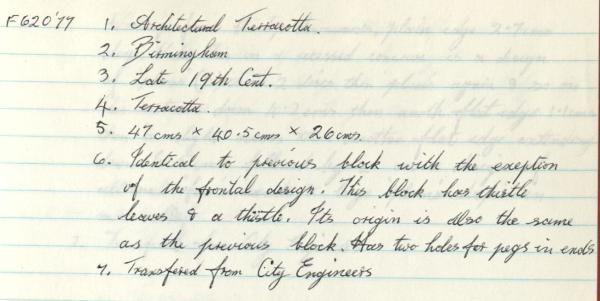 F620'77 1. Architectural Terracotta.
2. Birmingham
3. Late 19th Cent.
4. Terracotta.
5. 47 cms × 40.5 cms × 26 cms.
6. Identical to previous block with the exeption
of the frontal design. This block has thistle
leaves & a thistle. Its origin is also the same
as the previous block. Has two holes for pegs in ends
7. Transfered from City Engineers